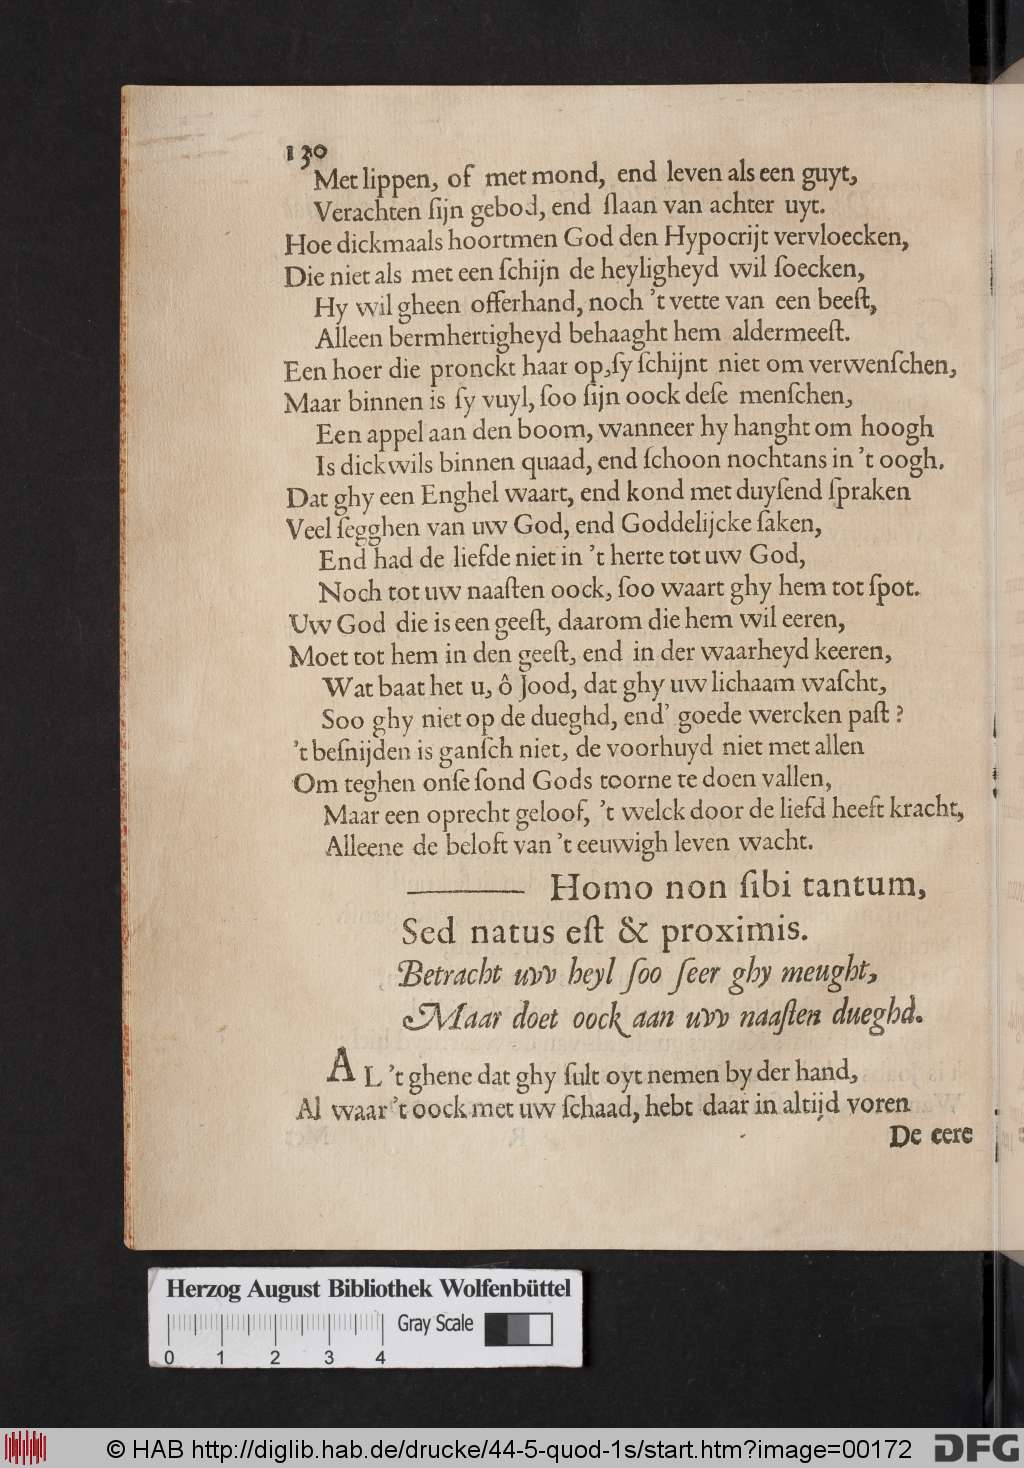 130
Met lippen, of met mond, end leven als een guyt,
Verachten ſijn gebod, end ſlaan van achter uyt.
Hoe dickmaals hoortmen God den Hypocrijt vervloecken,
Die niet als met een ſchijn de heyligheyd wil ſoecken,
Hy wil gheen offerhand, noch 't vette van een beeſt,
Alleen bermhertigheyd behaaght hem aldermeeſt.
Een hoer die pronckt haar op, ſy ſchijnt niet om verwenſchen,
Maar binnen is ſy vuyl, ſoo ſijn oock deſe menſchen,
Een appel aan den boom, wanneer hy hanght om hoogh
Is dickwils binnen quaad, end ſchoon nochtans in 't oogh.
Dat ghy een Enghel waart, end kond met duyſend ſpraken
Veel ſegghen van uw God, end Goddelijcke ſaken,
End had de liefde niet in 't herte tot uw God,
Noch tot uw naaſten oock, ſoo waart ghy hem tot ſpot.
Uw God die is een geeſt, daarom die hem wil eeren,
Moet tot hem in den geeſt, end in der waarheyd keeren,
Wat baat het u, ô Jood, dat ghy uw lichaam waſcht,
Soo ghy niet op de dueghd, end' goede wercken paſt?
't beſnijden is ganſch niet, de voorhuyd niet met allen
Om teghen onſe ſond Gods toorne te doen vallen,
Maar een oprecht geloof, 't welck door de liefd heeft kracht,
Alleene de beloft van 't eeuwigh leven wacht.
——— Homo non ſibi tantum,
Sed natus eſt & proximis.
Betracht uvv heyl ſoo ſeer ghy meught,
Maar doet oock aan uvv naaſten dueghd.
AL 't ghene dat ghy ſult oyt nemen by der hand,
Al waar 't oock met uw ſchaad, hebt daar in altijd voren
De eere
Herzog August Bibliothek Wolfenbüttel
Gray Scale
0 1 2 3 4
© HAB http://diglib.hab.de/drucke/44-5-quod-1s/start.htm?image=00172
DFG